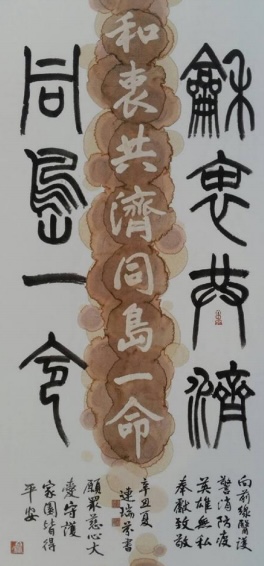 龢衷共濟
同島一命
和衷共濟同島一命
向前線醫護
警消防疫
英雄無私
奉獻致敬
辛丑夏
連瑞芬書
願眾慈心大
愛守護
家園皆得
平安